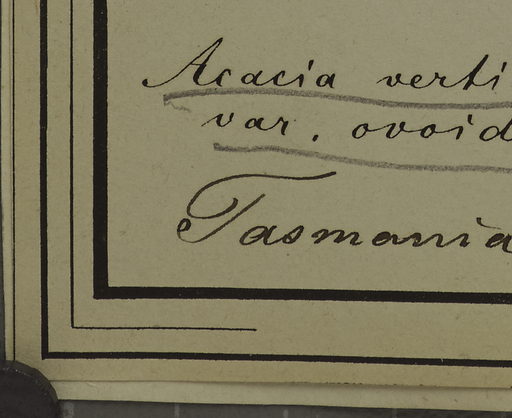 Acacia verti
var. ovoid
Tasmania